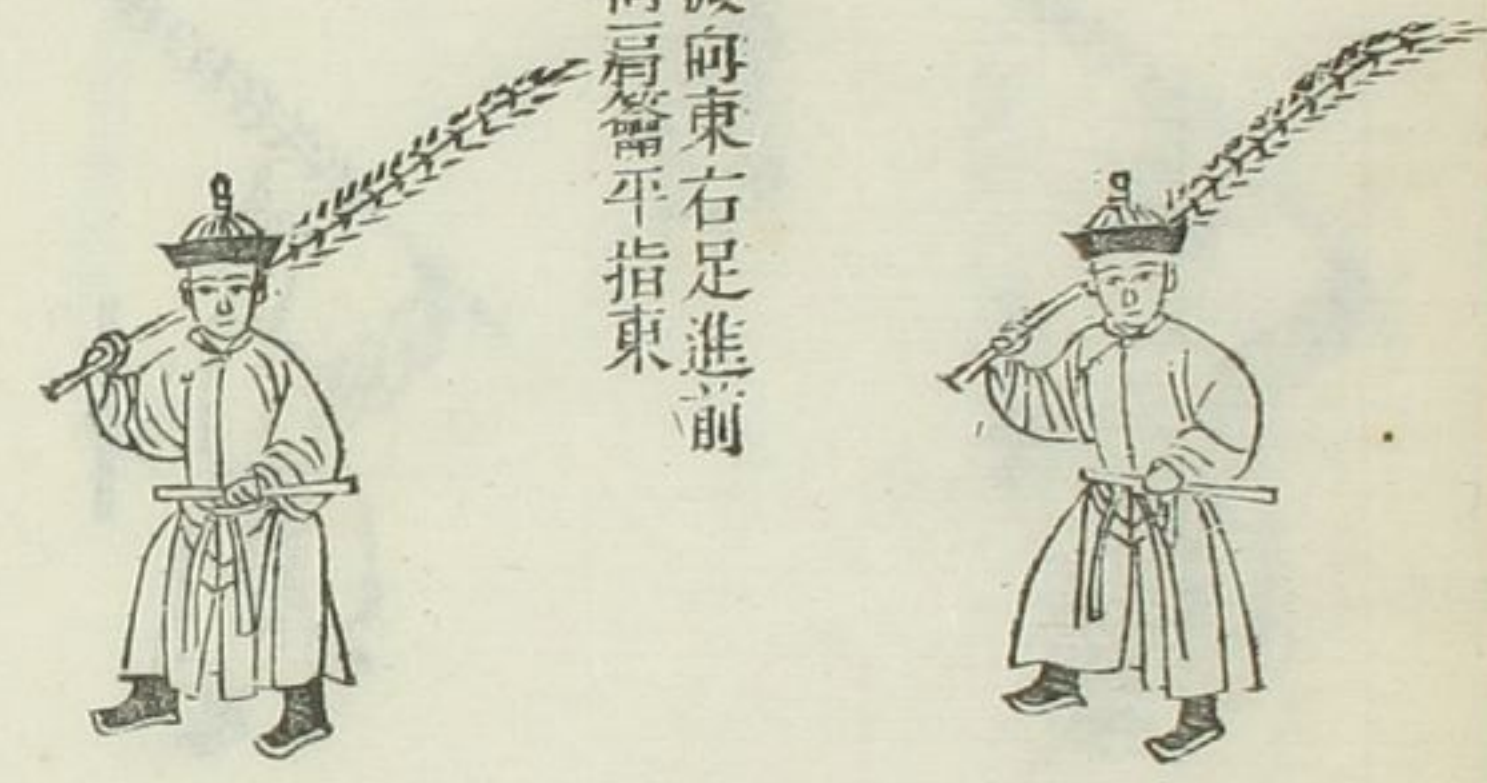 向東右足進前
肩籥平指東